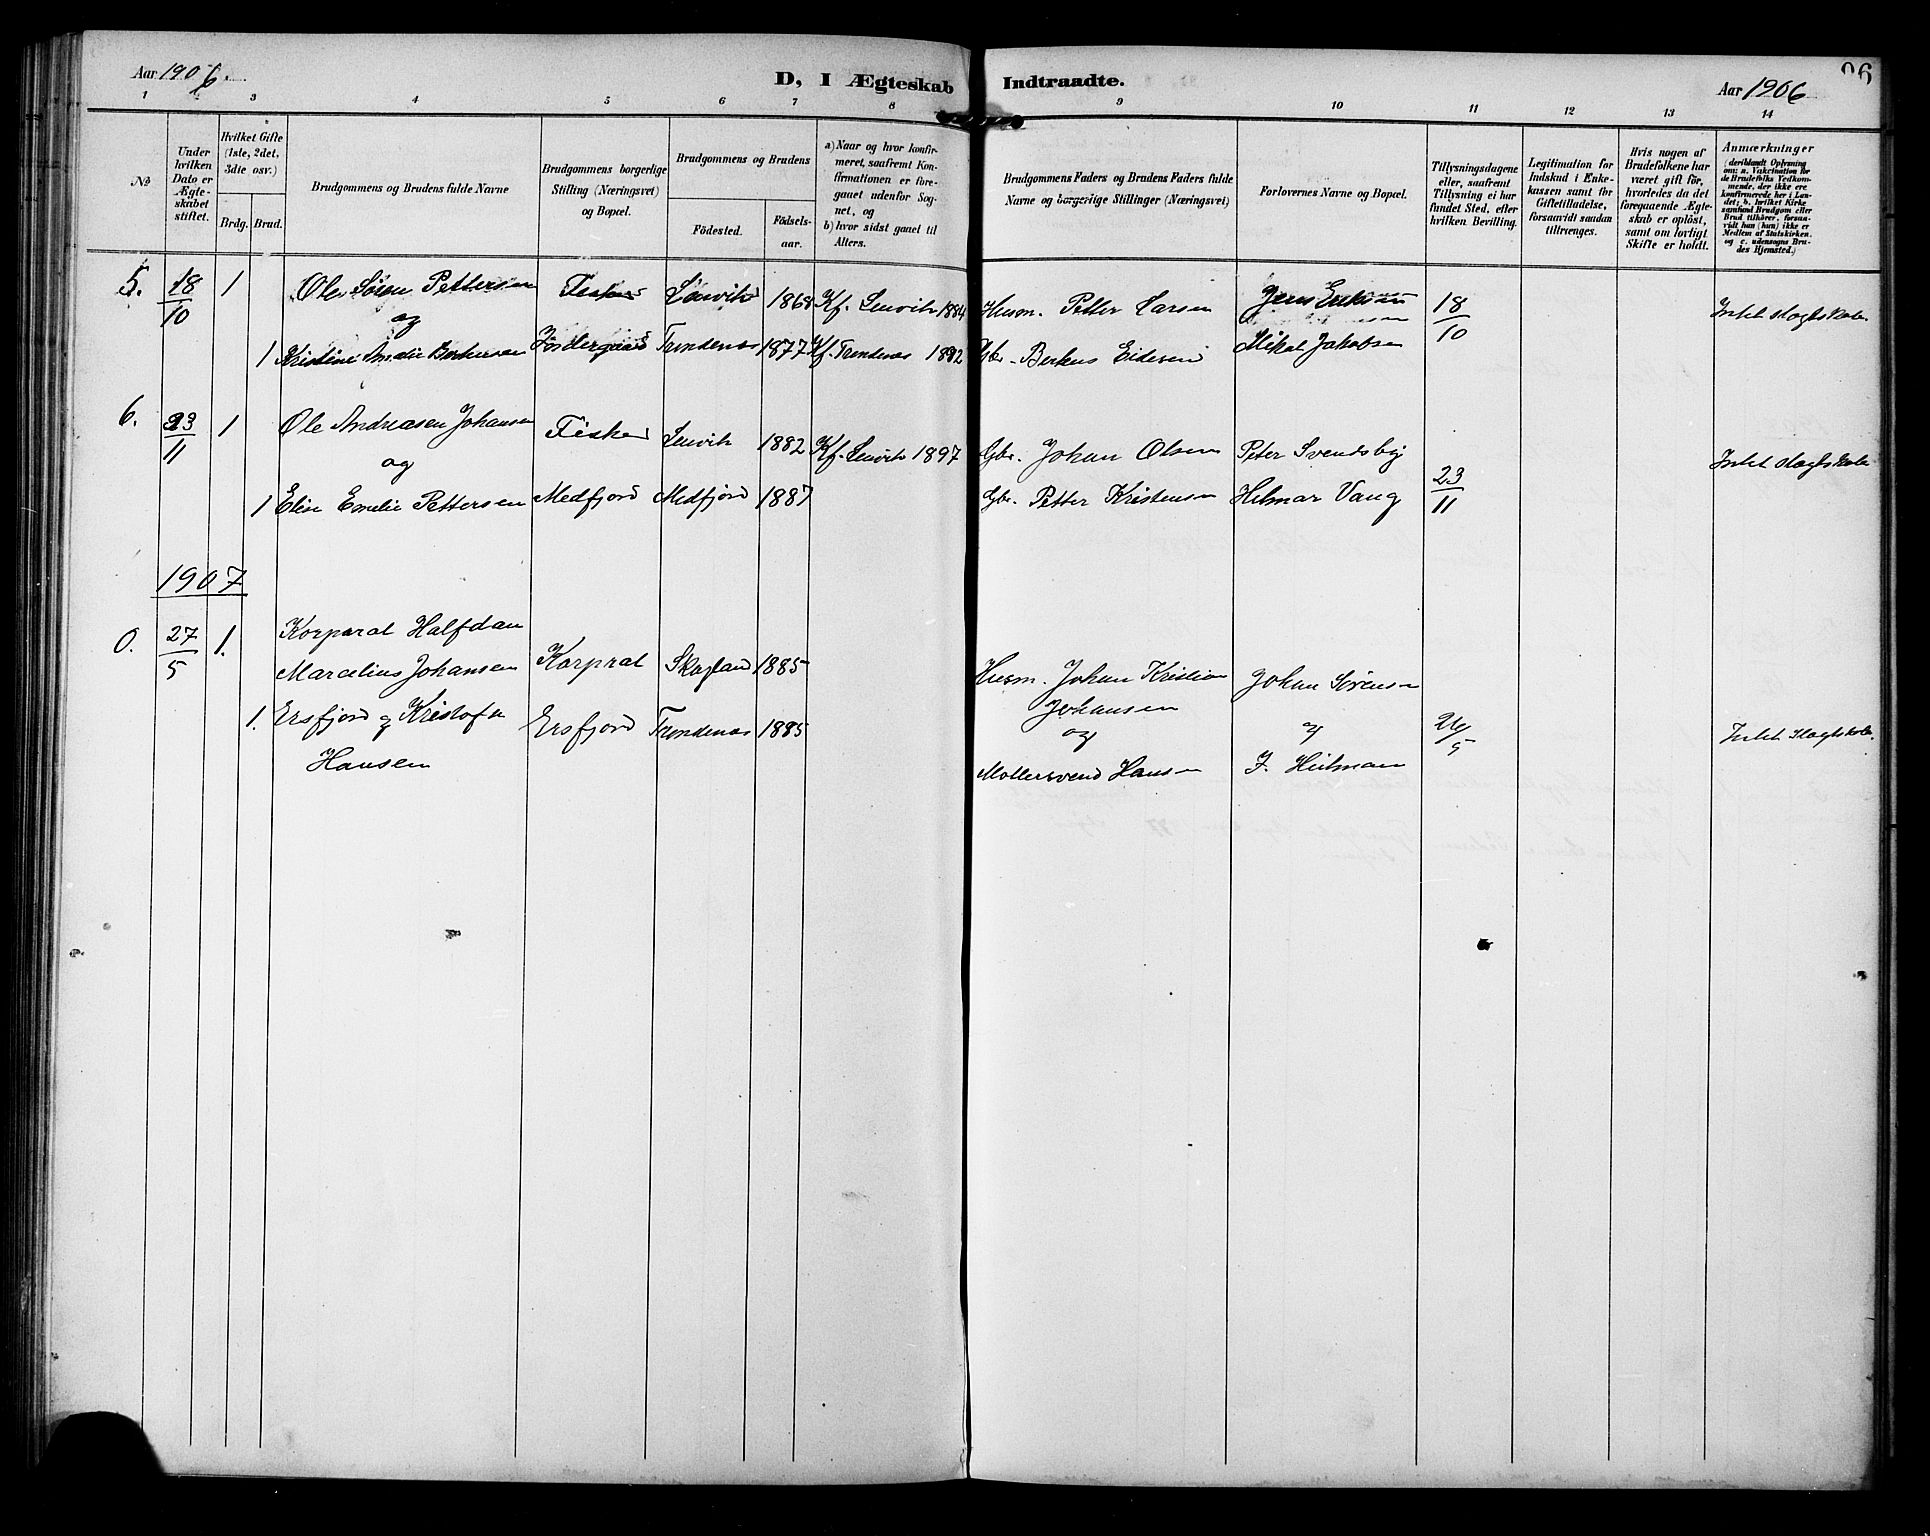 Aar 1906.
D, I Ægteskab Indtraadte.
Aar 1906
1 2 3 4 5 6 7 8 9 10 11 12 13 14
No
Under hvilken Dato er Ægteskabet stiftet.
Hvilket Gifte (1ste, 2det, 3die osv.)
Brdg. Brud.
Brudgommens og Brudens fulde Navne
Brudgommens borgerlige Stilling (Næringsvei) og Bopæl.
Brudgommens og Brudens
Födested. Födselsaar.
a) Naar og hvor konfirmeret, saafremt Konfirmationen er foregaaet udenfor Sognet, og
b) hvor sidst gaaet til Alters.
Brudgommens Faders og Brudens Faders fulde Navne og borgerlige Stillinger (Næringsvei)
Forlovernes Navne og Bopæl.
Tillysningsdagene eller, saafremt Tillysning ei har fundet Sted, efter hvilken Bevilling.
Legitimation for Indskud i Enkekassen samt for Giftetilladelse, forsaavidt saadan tiltrænges.
Hvis nogen af Brudefolkene har været gift för, hvorledes da det foregaaende Ægteskab er oplöst, samt om lovligt Skifte er holdt.
Anmærkninger
(deriblandt Oplysning om: a. Vakcination for de Brudefolks Vedkommende, der ikke ere konfirmerede her i Landet; b. hvilket Kirkesamfund Brudgom eller Brud tilhörer, forsaavidt han (hun) ikke er Medlem af Statskirken, og c. udensogns Brudes Hjemsted.)
5. 18/10 1 Ole Sören Pettersen Fisker Lenvik 1868 Kf. Lenvik 1884 Husm. Petter Larsen Jens Eriksen 18/10 Intet slagtskab.
og
1 Kristine Amalie Berhusen Söndergaard Trondenæs 1877 Kf. Trondenæs 1892 Gbr. Berhus Eidesen Mikal Jakobsen
6. 23/11 1 Ole Andreasen Johansen Fisker Lenvik 1882 Kf. Lenvik 1897 Gbr. Johan Olsen Peter Svendsby Intet slagtskab
og
1 Elise Emelie Pettersen Medfjord Medfjord 1887 Gbr. Petter Kristensen Hilmar Vang 23/11
1907
0. 27/5 1. Korporal Halfdan
Marcelius Johansen Korpral Skogland 1885 Husm. Johan Kristian Johan Sörensen
Johansen
1. Ersfjord og Kristofa Ersfjord Trondenæs 1885 og og 26/5 Intet Slagtskab.
Hansen Møllersvend Hansen J. Heitman